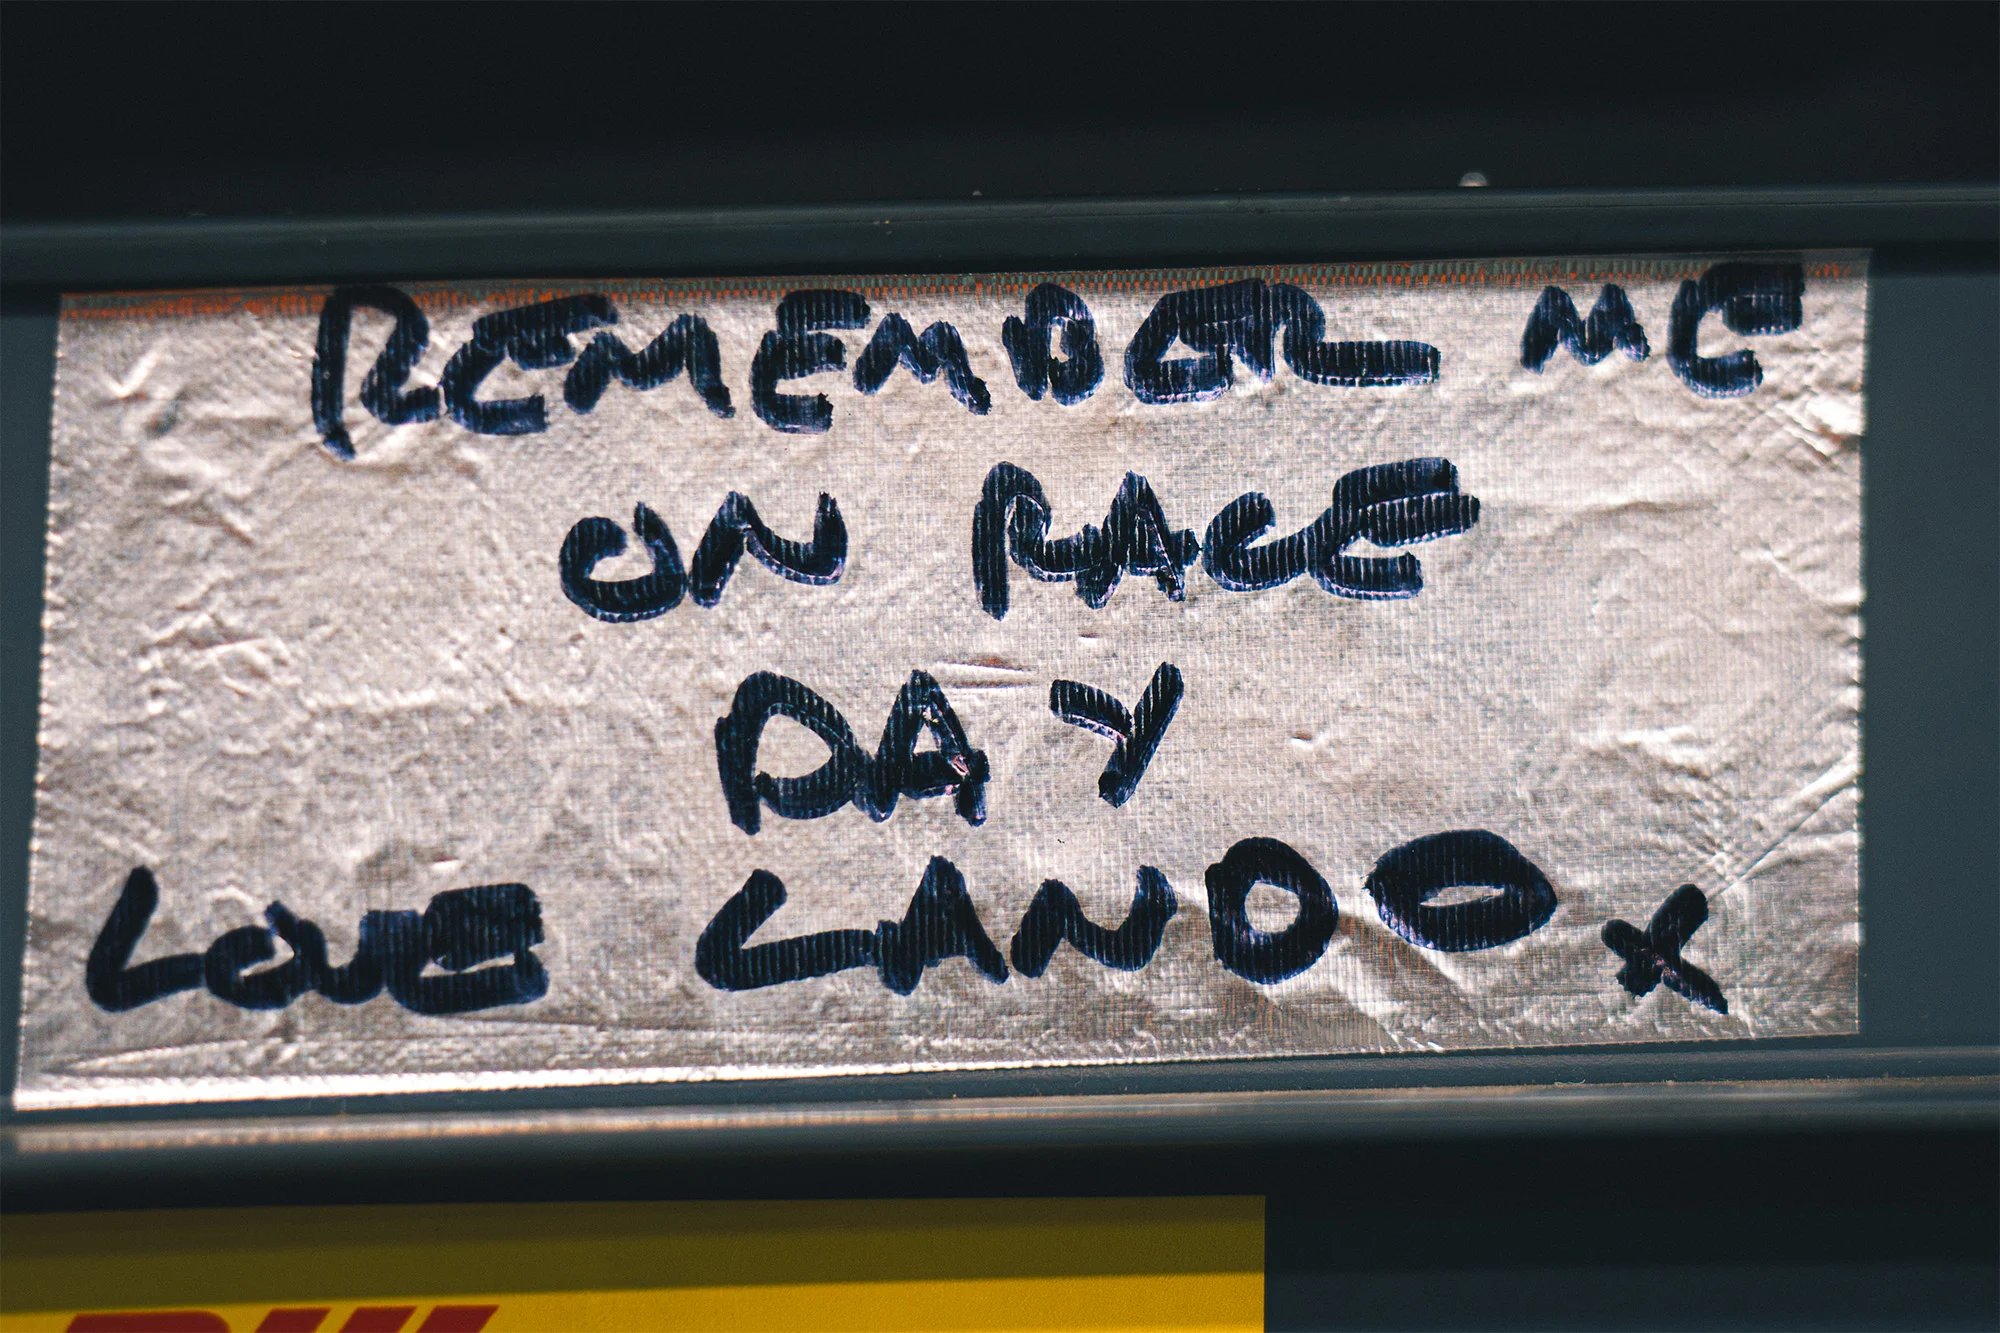 REMEMBER ME
ON RACE
DAY
LOVE LANDO x
DHL